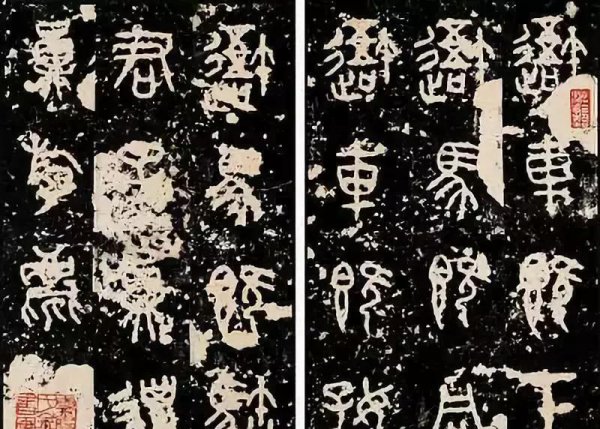 吾車既工
吾馬既同
吾車既好
吾馬既
君員邋
員斿麀